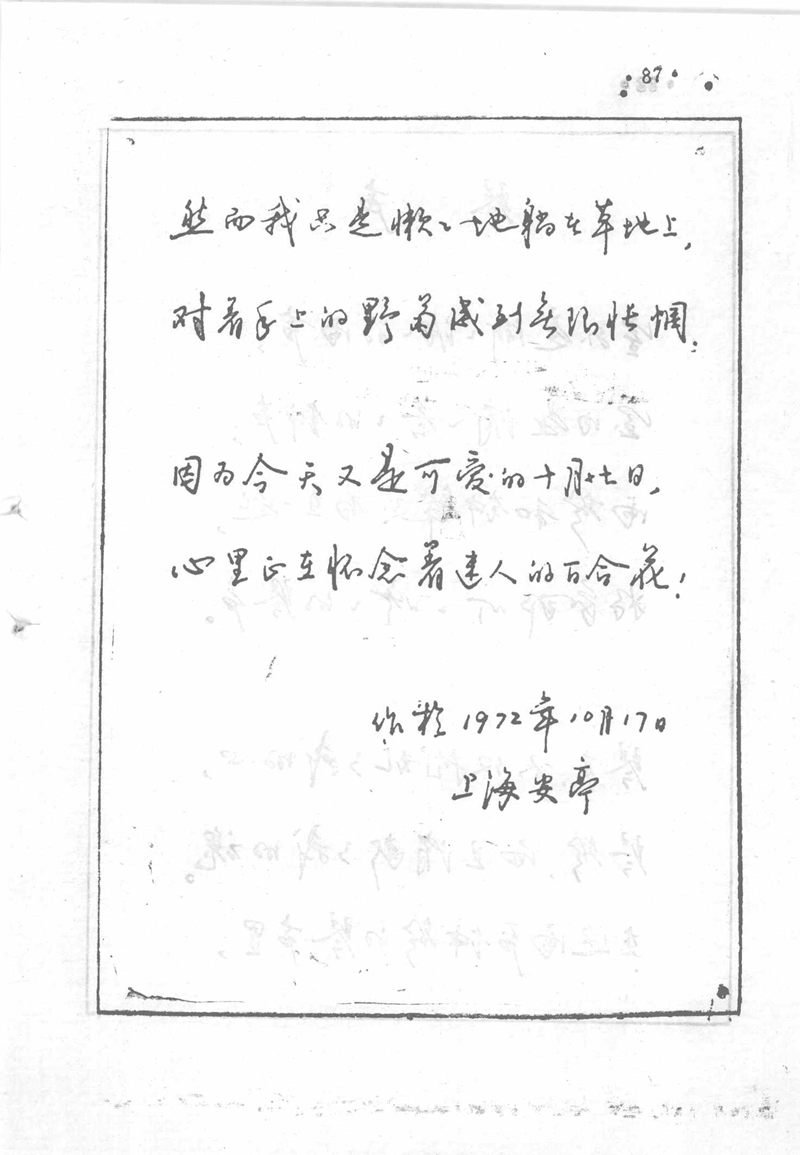 87
然而我只是懒々地躺在草地上,
对着手上的野菊感到无限怅惘:
因为今天又是可爱的十月十七日,
心里正在怀念着迷人的百合花!
作於1972年10月17日
上海安亭